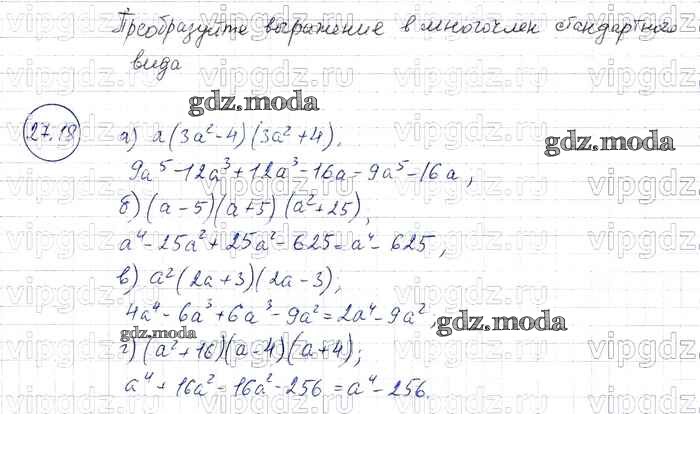 Преобразуйте выражение в многочлен стандартного
вида
gdz.moda
27.18
а) a(3a²-4)(3a²+4),
gdz.moda
9a⁵-12a³+12a³-16a=9a⁵-16a,
б) (a-5)(a+5)(a²+25),
a⁴-25a²+25a²-625=a⁴-625,
в) a²(2a+3)(2a-3);
4a⁴-6a³+6a³-9a²=2a⁴-9a²,
gdz.moda
gdz.moda
г) (a²+16)(a-4)(a+4);
a⁴+16a²-16a²-256=a⁴-256.
vipgdz.com